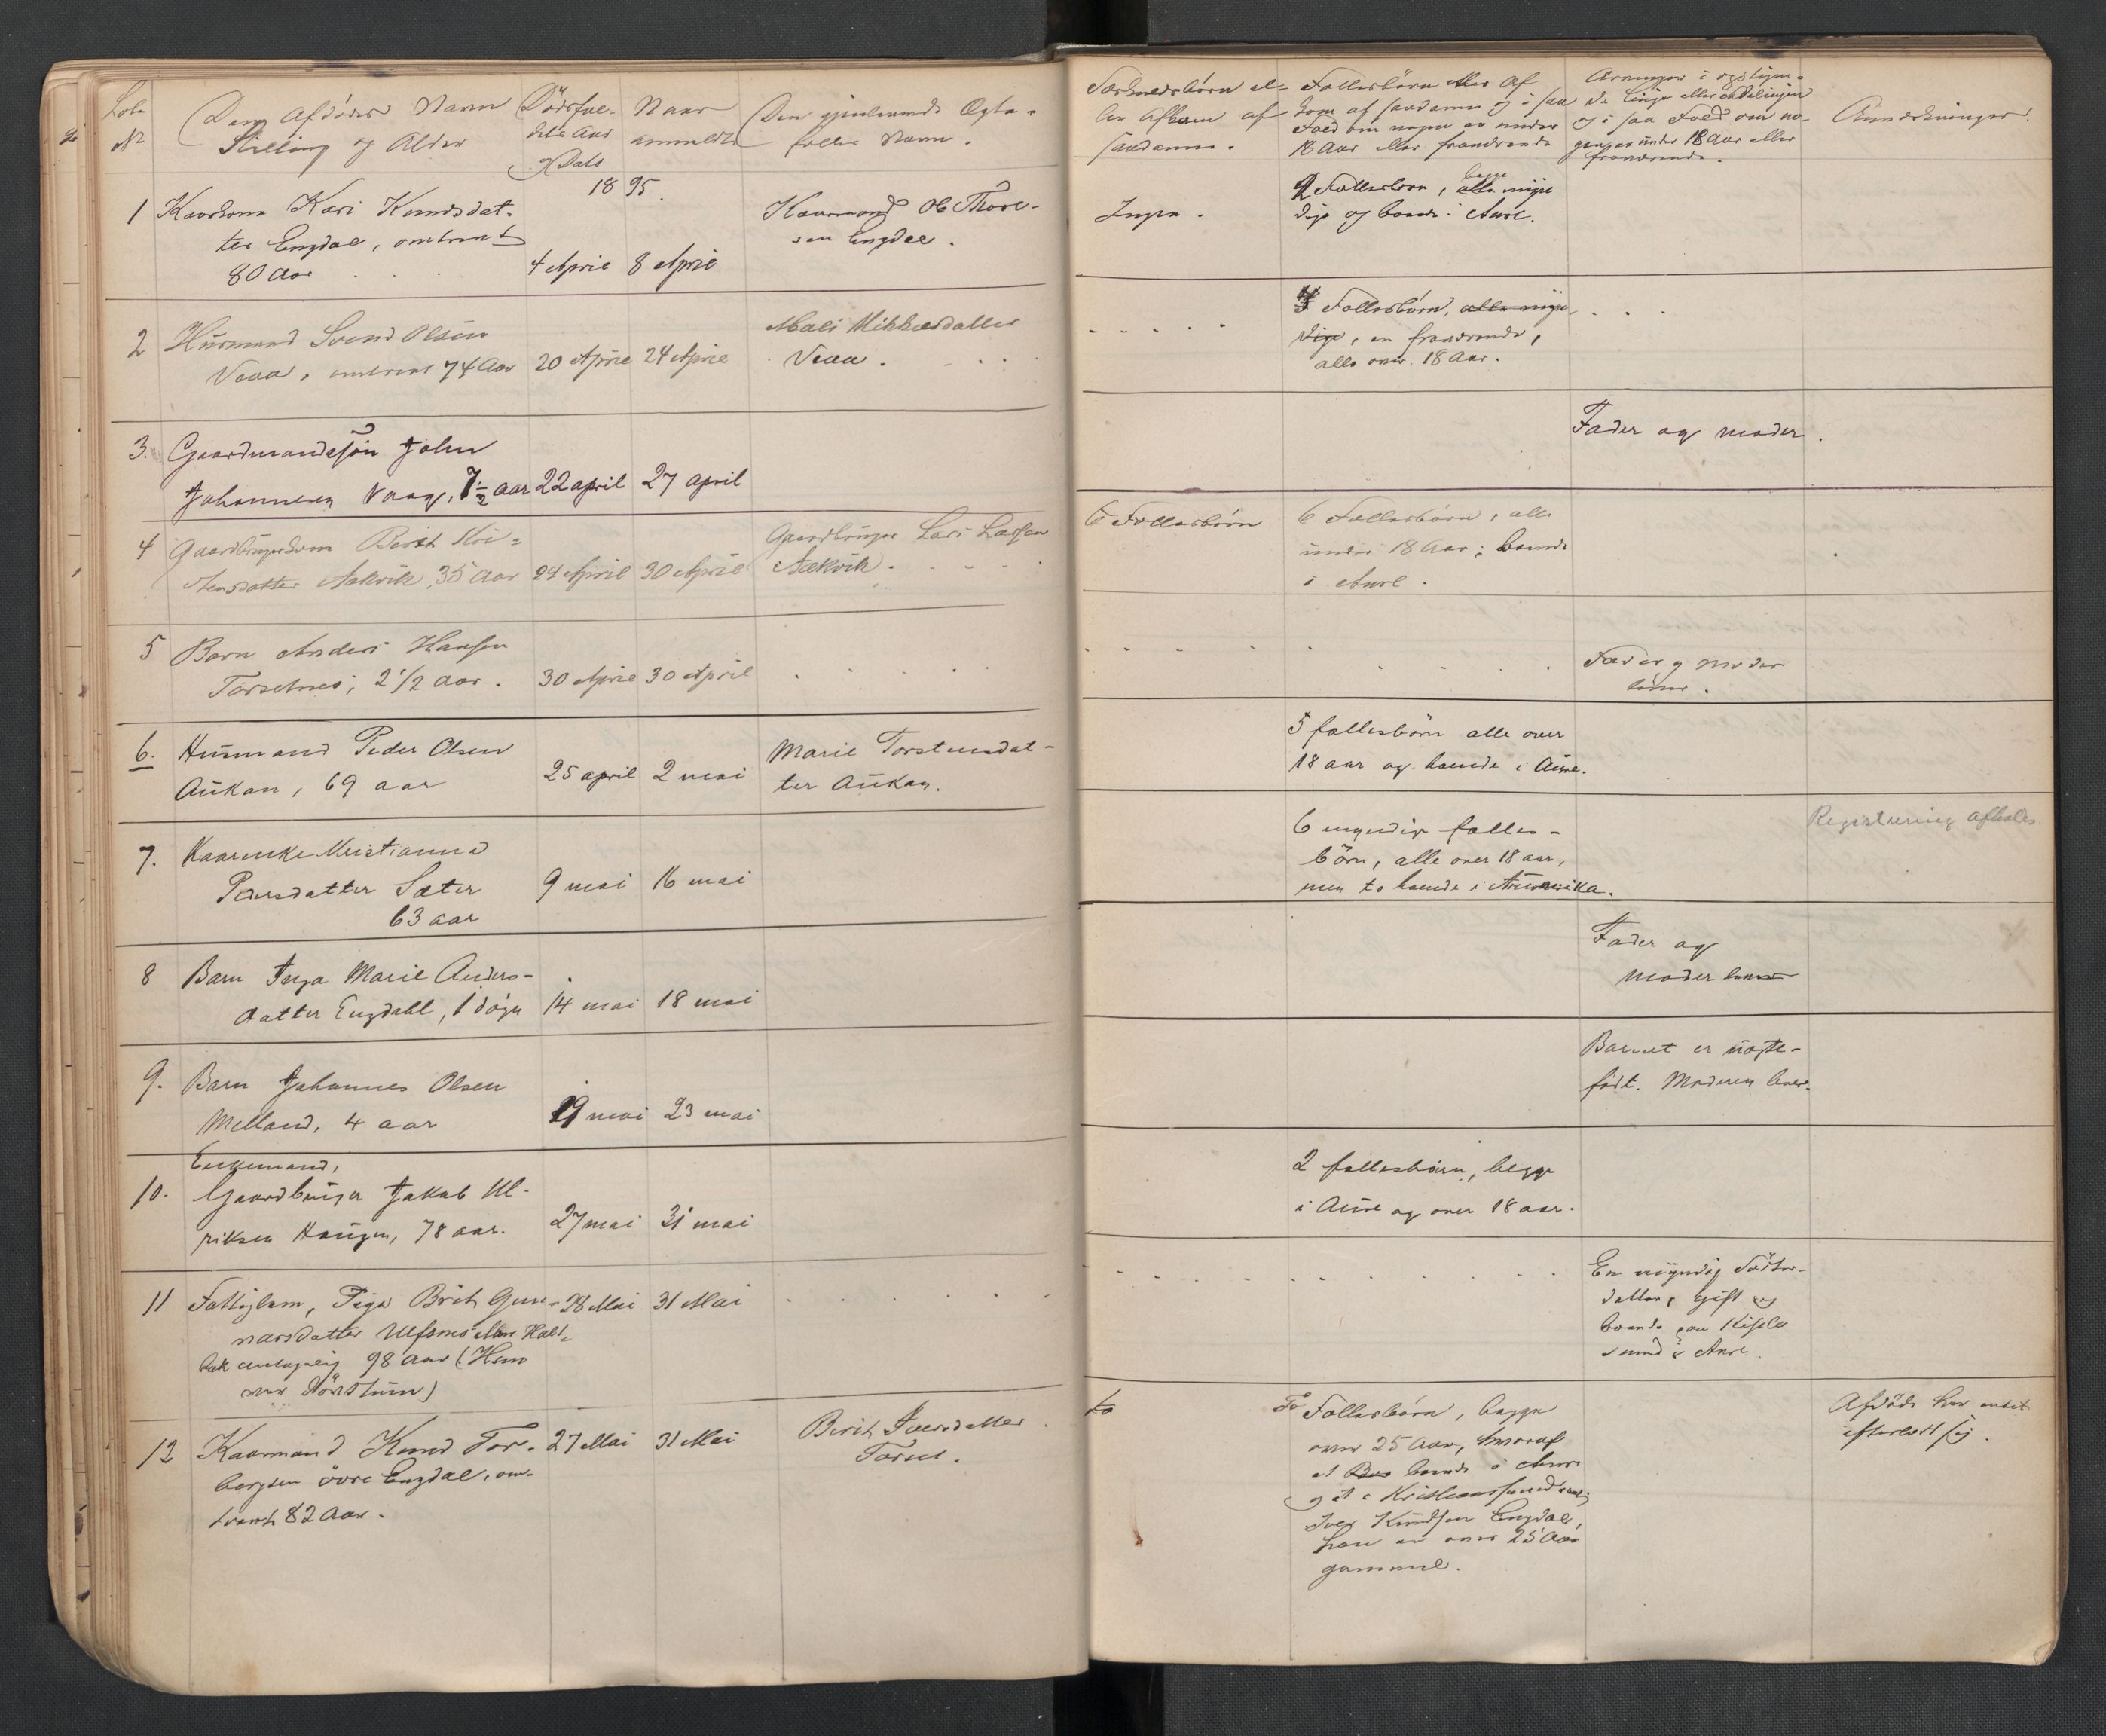 Lobe
Den Afdødes Navn
Dødsfal-
Naar
Den gjenlevende Ægte-
No
Stilling og Alder
dets Aar
anmeldt
fælles Navn.
og Dato
Særkuldsbörn el-
ler Afkom af
saadanne.
Fællesbörn eller Af
kom af saadanne og i saa
Fald om nogen er under
18 Aar eller fraværende
Arvinger i opstigen-
de linje eller sidelinjen
og i saa Fald om no-
gen er under 18 Aar eller
fraværende.
Anmerkninger.
1895.
1 Kaarkone Kari Knudsdat-
ter Engdal, omtrent
80 Aar
4 April 8 April
Kaarmand Ole Thore-
sen Engdal.
Ingen.
2 Fællesbörn, alle myn
begge
dige og boende i Aure.
2 Husmand Svend Olsen
Vaag, omtrent 74 Aar 20 April 24 April
Mali Mikkelsdatter
4 Fællesbörn, alle myn
dige, en fraværende,
alle over 18 Aar.
3. Gaardmandssön John
Johannesen Vaag, 7½ aar 22 april 27 april
Fader og moder.
4 Gaardbrugerkone Berit Kri-
stensdatter Aakvik, 35 Aar 24 April 30 April
Gaardbruger Lars Larsen
Aakvik.
6 Fællesbörn
6 Fællesbörn, alle
under 18 Aar; boende
i Aure.
5 Barn Anders Hansen
Torsetnes, 2 1/2 Aar. 30 April 30 April
Fader og moder
lever.
6. Husmand Peder Olsen
Aukan, 69 aar
25 april 2 mai
Marie Torstensdat-
ter Aukan.
5 fællesbörn alle over
18 aar og boende i Aure.
7. Kaarenke Kristianna
Pedersdatter Sæter
63 aar
9 mai 16 mai
6 myndige fælles-
börn, alle over 18 aar,
men to boende i Amerika.
Registrering afholdes.
8 Barn Inga Marie Anders-
datter Engdahl, 1 døgn 14 mai 18 mai
Fader og
moder lever
9. Barn Johannes Olsen
Melland, 4 aar
19 mai 23 mai
Barnet er uægte-
født. Moderen lever.
Enkemand,
10. Gaardbruger Jakob Ul-
riksen Haugen, 78 aar. 27 mai 31 mai
2 fællesbörn, begge
i Aure og over 18 aar.
11 Fattiglem, Pige Brit Gun-
narsdatter Ulfsnes eller Hald-
bak antagelig 98 Aar (Hem
28 Mai 31 Mai
En myndig Søster-
datter, gift og
boende paa
sund i Aure.
12 Kaarmand Knud Tor-
bergsen övre Engdal, om-
trent 82 Aar.
27 Mai 31 Mai
Berit Iversdatter
to
To Fællesbörn, begge
over 25 Aar, hvoraf
et boende i Aure
og et i Kristianssund
Iver Knudsen Engdal,
han er over 25 Aar
gammel.
Afdöde har intet
efterladt sig.